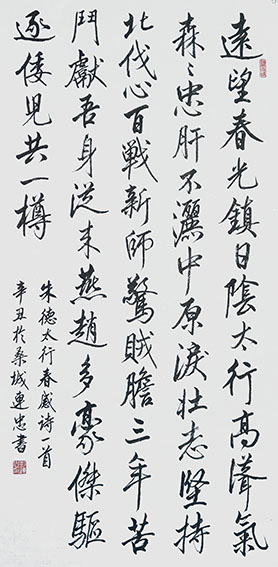 遠望春光鎮日陰太行高聳氣
森〻忠肝不灑中原淚壯志堅持
北伐心百戰新師驚賊膽三年苦
鬥獻吾身從来燕趙多豪傑驅
逐倭兒共一樽
朱德太行春感诗一首
辛丑於桑城連忠書